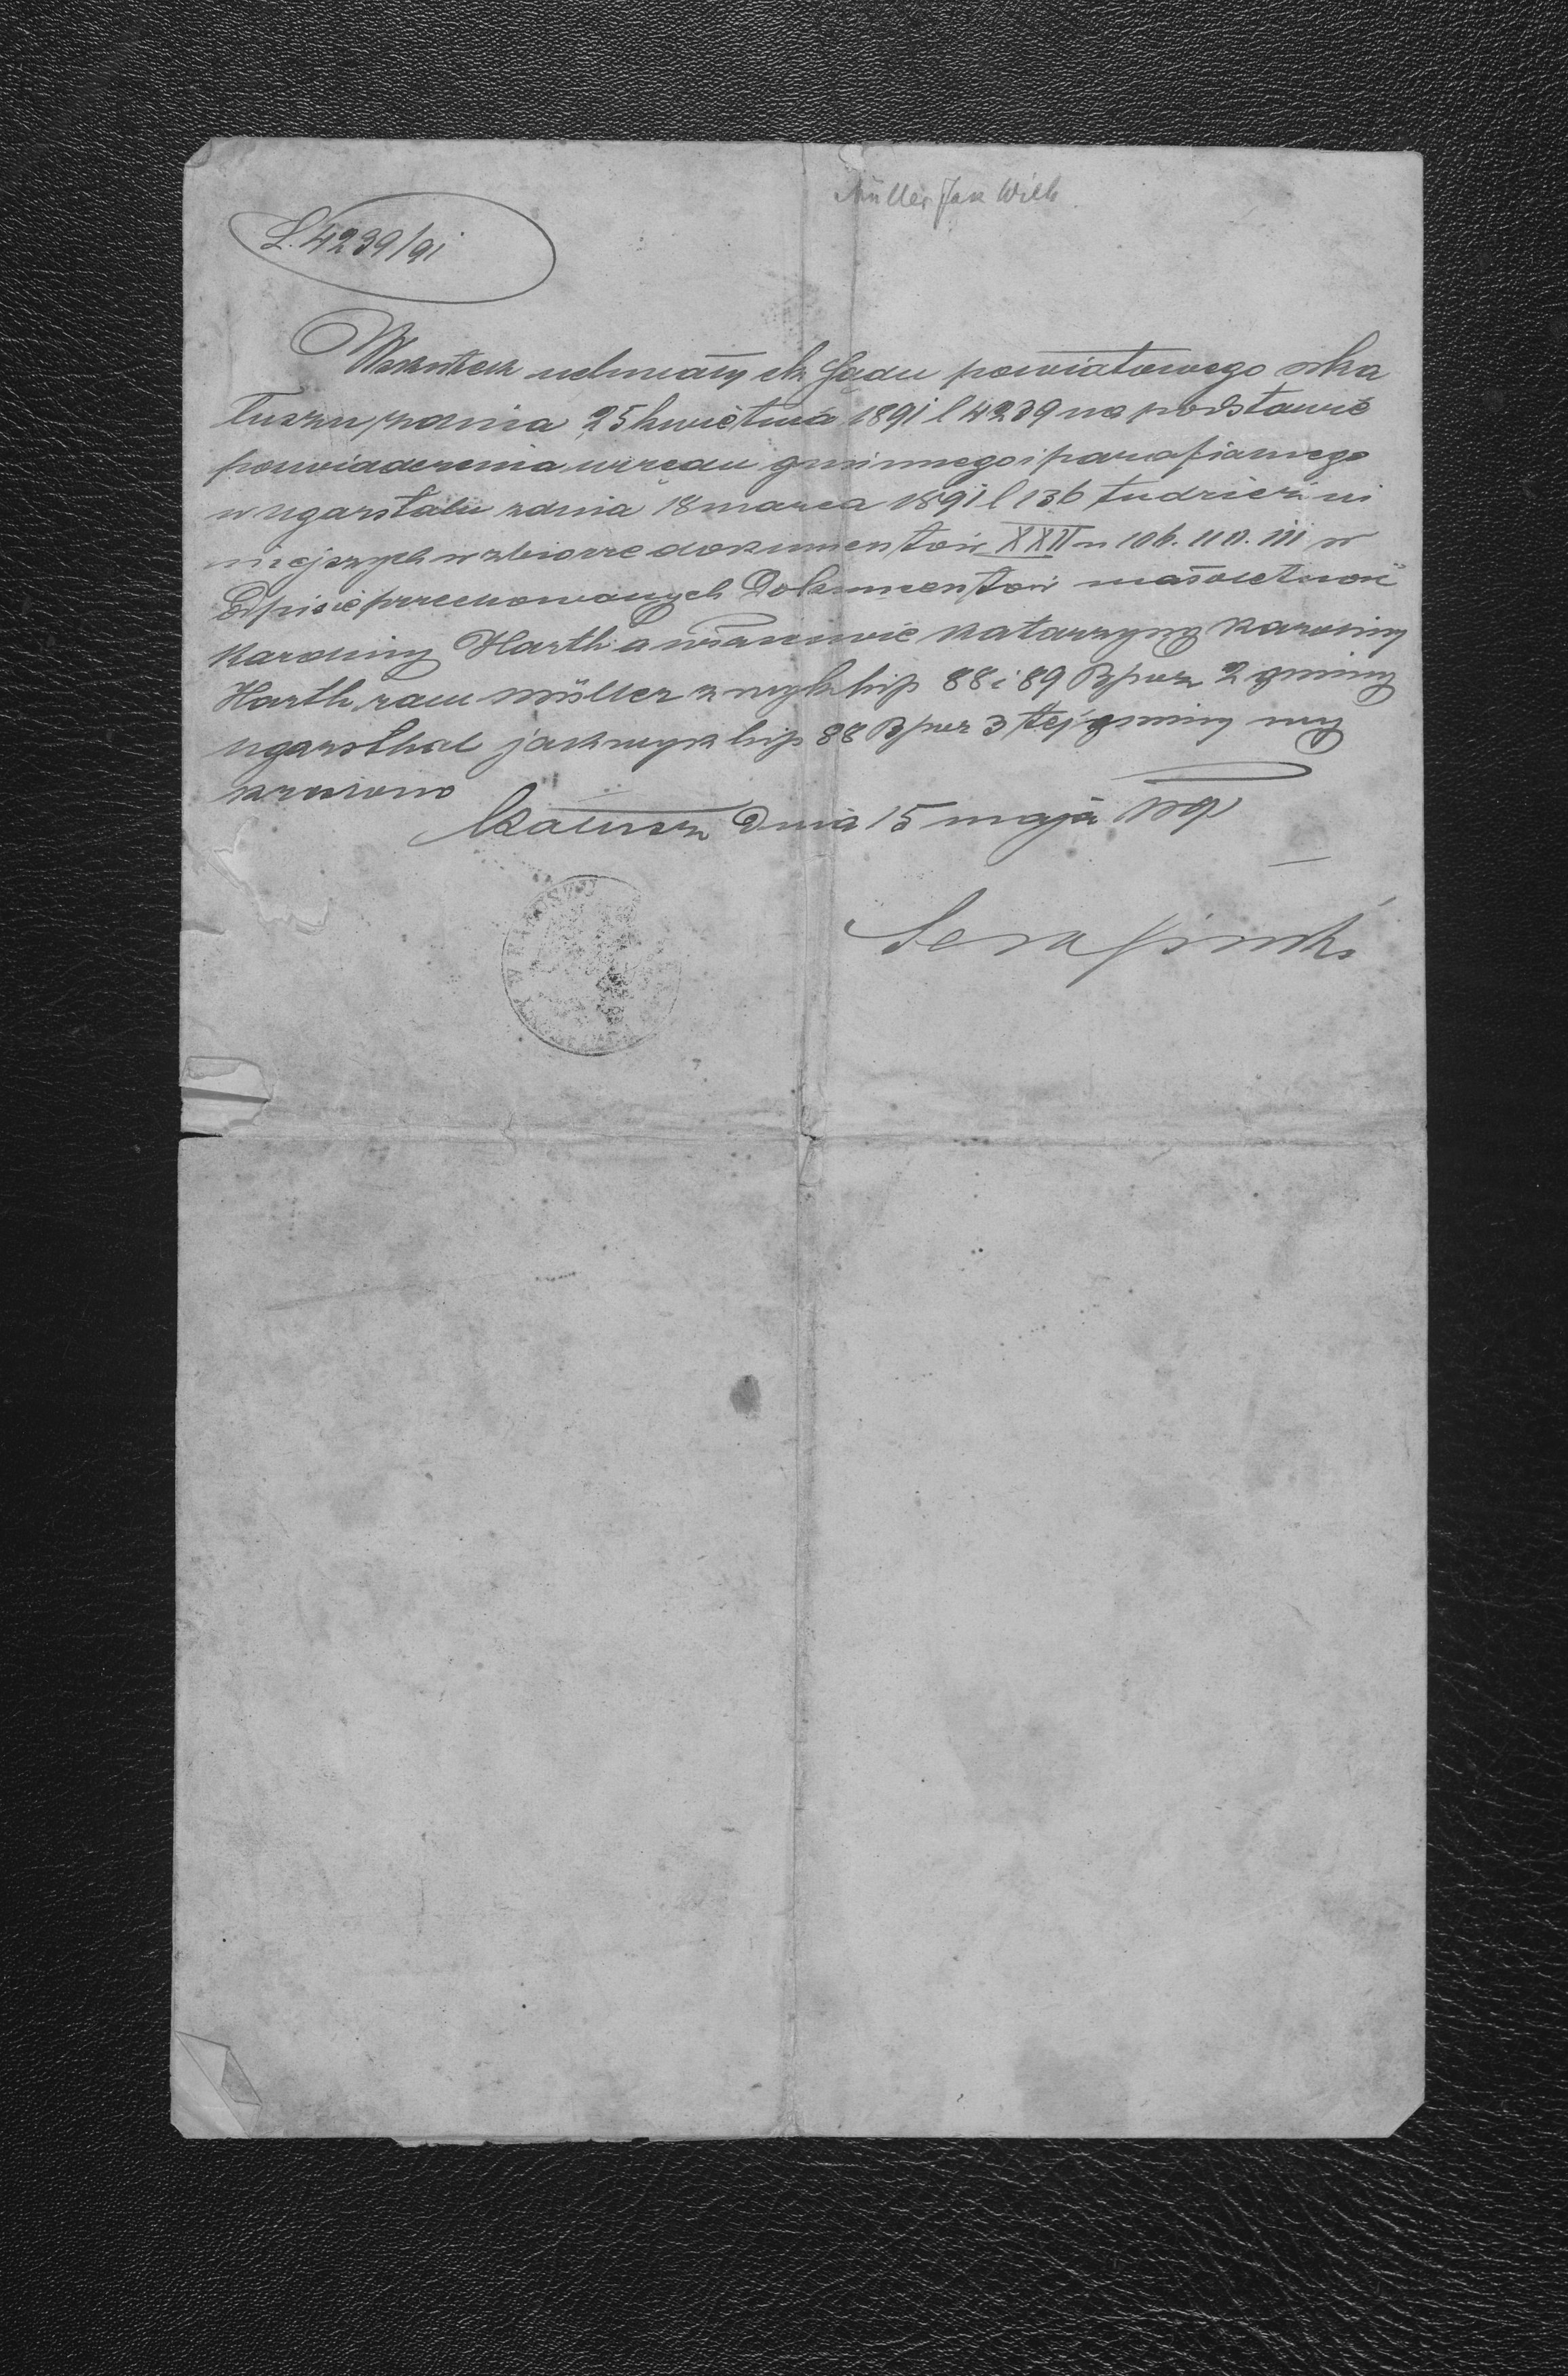 Müller Jak Wilh
L. 4239/91
Wskutek uchwały ck Sądu powiatowego w Ka
łuszu z dnia 25 kwietnia 1891 l 4239 na podstawie
poswiadczenia urzędu gminnego i parafialnego
w Ugarstalu z dnia 18 marca 1891 l 136 tudzież ni
niejszych w zbiorze dokumentów XXII n 106. 110. 111 w
Odpisie przechowanych Dokumentów małoletność
Karoliny Harth a własciwie Katarzyny Karoliny
Harth zam Müller z wyk hip 88 i 89 B poz 2 gminy
Ugarsthal jak wyk hip 88 B poz 3 tej gminy wy
kreślono
Kałusz Dnia 15 maja 1891
Serafiński